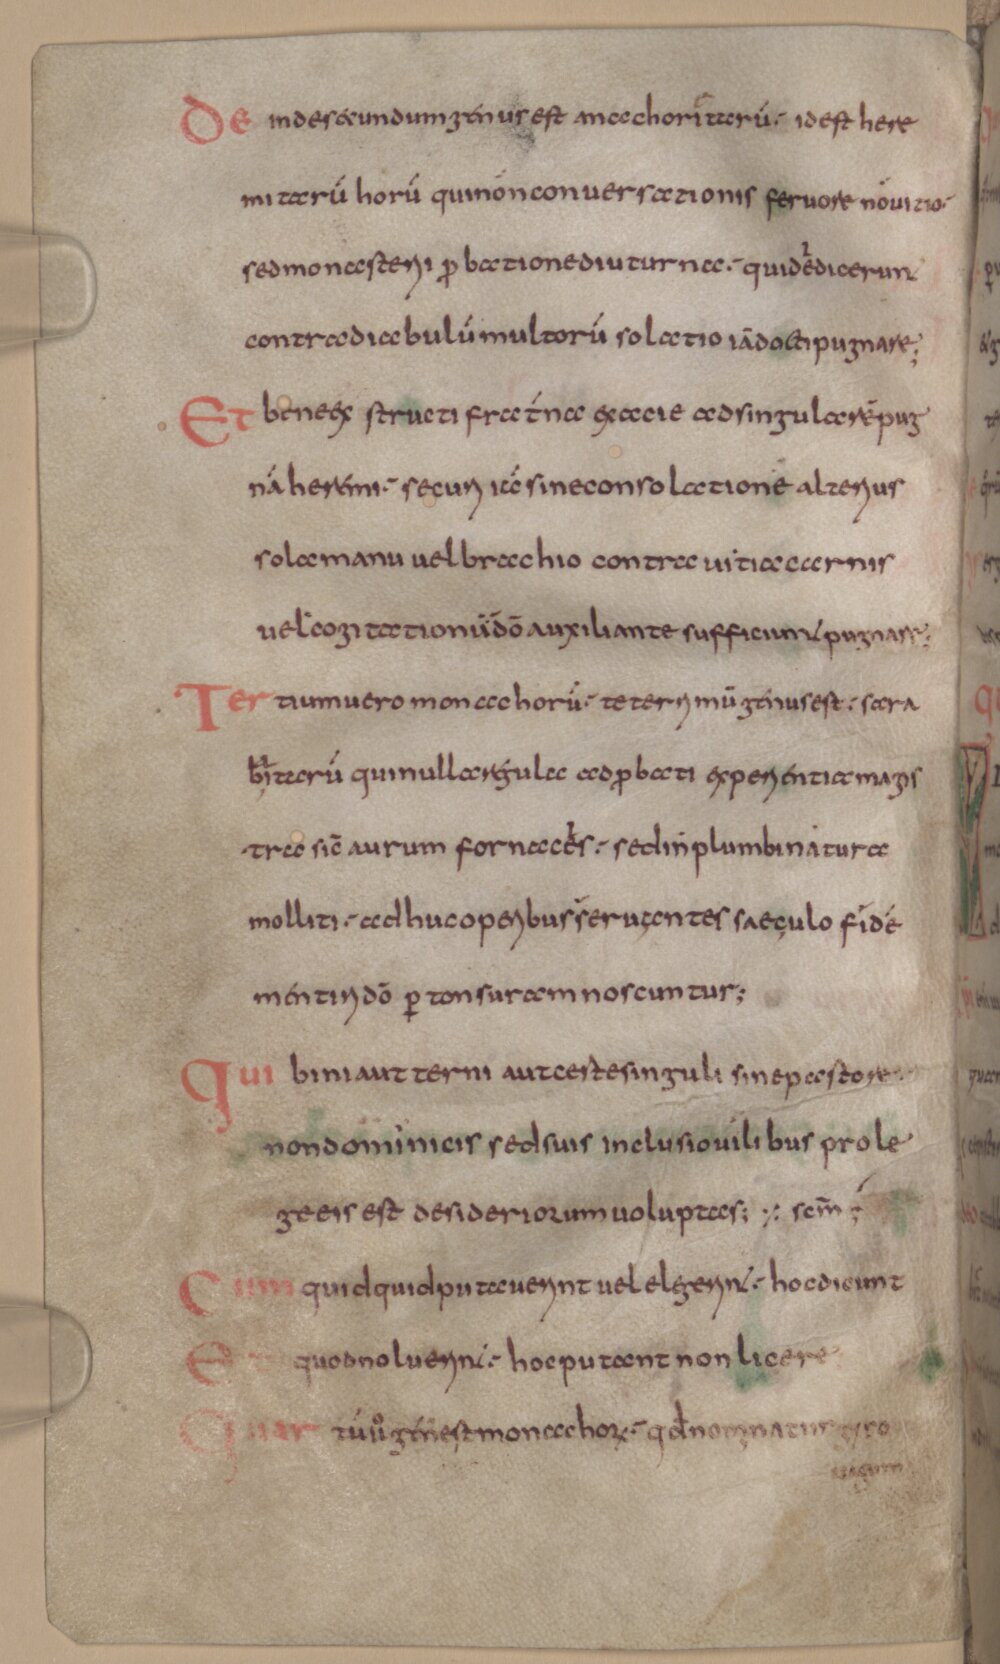 De indesecundum gen̄us est anachoritarū· id est here
mitarū horū qui nōn conversationis fervore nōvitio·
sed monasterii ꝓbatione diuturna·· qui didicerun
contra diabulū multorū solatio iā docti pugnare;
Et bene exstructi frat́na ex acie ad singularē pug
nā heremi·· securi iā sine consolatione alterius
sola manu vel brachio contra vitia carnis
vel cogitationū dō auxiliante sufficiunt pugnare;
Tertium vero monachorū· teterrimū gen̄us est· sara
baitarū qui nulla regula adꝓbati experientia magis
tra sic̄ aurum fornacis·· sed in plumbi natura
molliti·· adhuc operibus servantes saeculo fidē
mentiri dō ꝑ tonsuram noscuntur;
Qui bini aut terni aut certe singuli sine pastore··
non dominicis sed suis inclusi ovilibus pro le
ge eis est desideriorum voluptas; scm̄
Cum quidquid putaverint vel elegerint·· hoc dicunt
Et quod noluerint·· hoc putant non licere
Quartū v̊ gen̄ est monachoꝝ·· qđ nominatur gyro
vagum